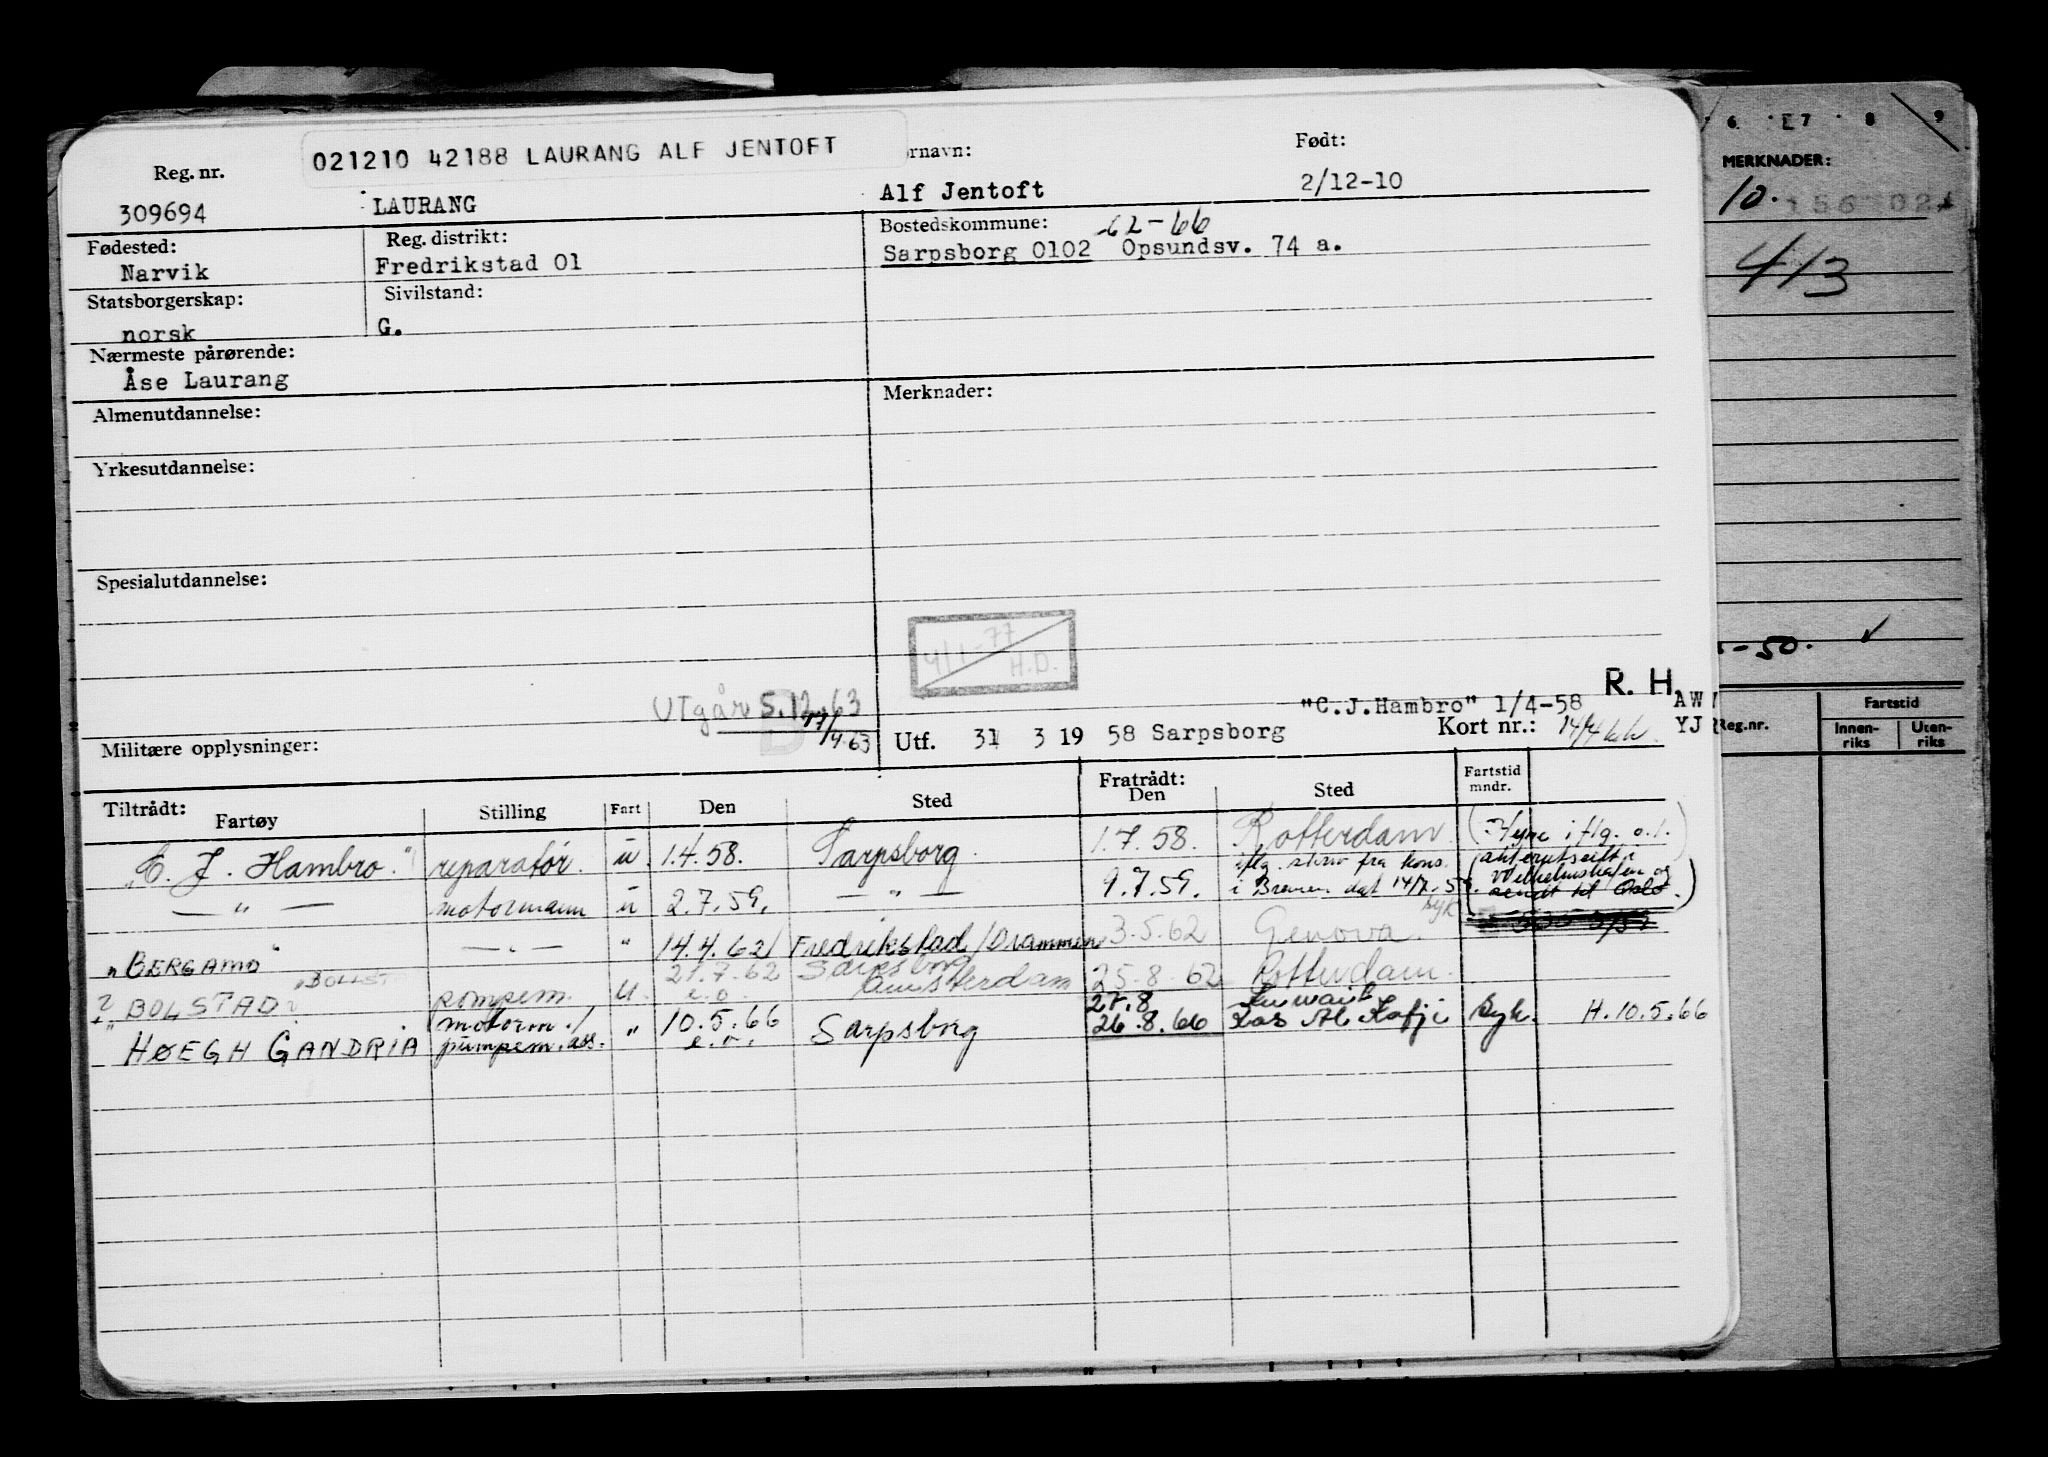 021210 42188 LAURANG ALF JENTOFT
Reg. nr.
309694
LAURANG
ornavn:
Alf Jentoft
Født:
2/12-10
Fødested:
Narvik
Reg. distrikt:
Fredrikstad 01
Bostedskommune: 62-66
Sarpsborg 0102 Opsundsv. 74 a.
Statsborgerskap:
norsk
Sivilstand:
G.
Nærmeste pårørende:
Åse Laurang
Almenutdannelse:
Merknader:
Yrkesutdannelse:
Spesialutdannelse:
4/1-77
H.D.
Utgår 5.12.63
17/4.63
Militære opplysninger:
R. H.
"C.J.Hambro" 1/4-58
Utf. 31 3 19 58 Sarpsborg
Kort nr.: 14/4
Tiltrådt:
Fartøy Stilling Fart Den Sted
Fratrådt:
Den Sted
Fartstid
mndr.
"C. J. Hambro." reparatør. u. 1.4.58. Sarpsborg. 1.7.58. Rotterdam. (Hyre iflg. o.l.
— " — motormann u 2.7.59. — " — 9.7.59. iflg. skriv fra kons. i Bremen dat 14/7.59.
(avmønstret i Wilhelmshafen og sendt til Oslo.)
"BERGAMO" — " — " 14.4.62 Fredrikstad/Drammen 3.5.62 Genova.
? BOLSTAD ? pumpem. u. 21.7.62 Sarpsborg 25.8.62 Rotterdam.
e.o. Amsterdam
"HØEGH GANDRIA motorm./ " 10.5.66 Sarpsborg 27.8 Kuwait
pumpem. ass. e.o. 26.8.66 Ras Al Kafji Syk. H. 10.5.66
6 7 8 9
MERKNADER:
10.
4/3
-50. ✓
AW
YJ
Reg.nr.
Fartstid
Innen-
riks
Uten-
riks